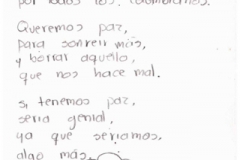 por todos los. Colombianos.
Queremos paz,
para sonreir más,
y borrar aquello,
que nos hace mal.
si tenemos paz,
seria genial,
ya que seriamos.
algo más